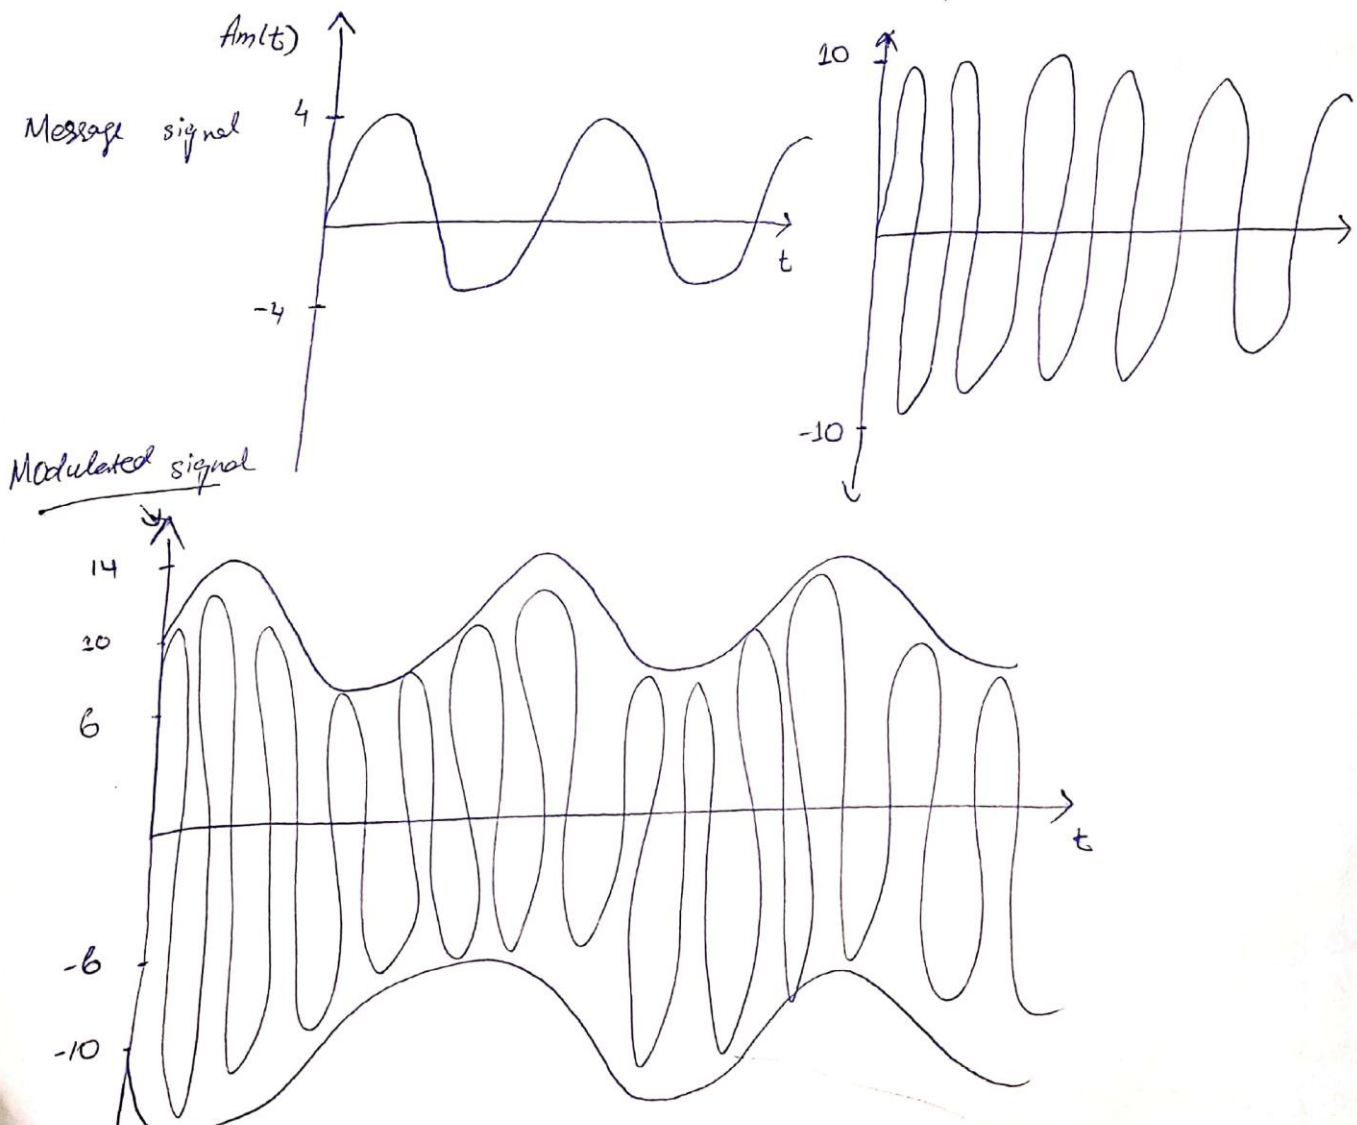 Am(t)
Message signal
4
-4
t
10
-10
Modulated signal
14
10
6
-6
-10
t